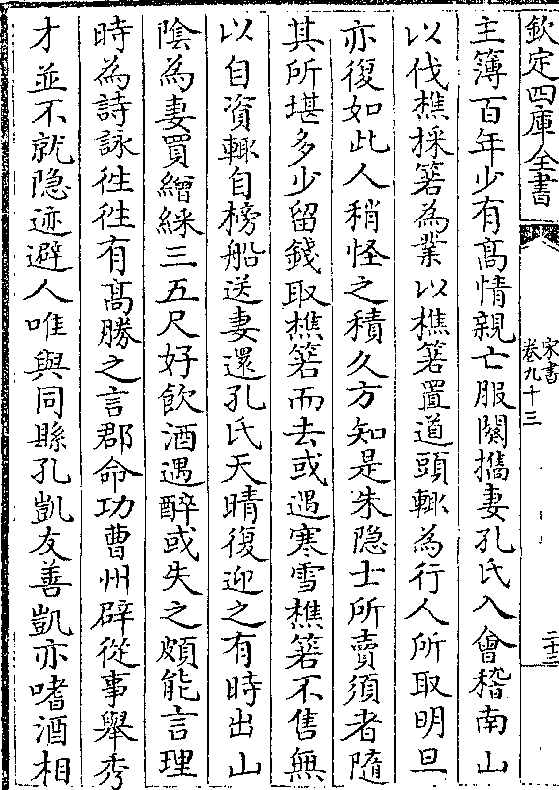 欽定四庫全書
宋書
卷九十三
二十三
主簿百年少有髙情親亡服闋攜妻孔氏入會稽南山
以伐樵採箬為業以樵箬置道頭輙為行人所取明旦
亦復如此人稍怪之積久方知是朱隐士所賣須者隨
其所堪多少留錢取樵箬而去或遇寒雪樵箬不售無
以自資輙自榜船送妻還孔氏天晴復迎之有時出山
隂為妻買繒綵三五尺好飲酒遇醉或失之頗能言理
時為詩詠徃徃有髙勝之言郡命功曹州辟從事舉秀
才並不就隐迹避人唯與同縣孔凱友善凱亦嗜酒相